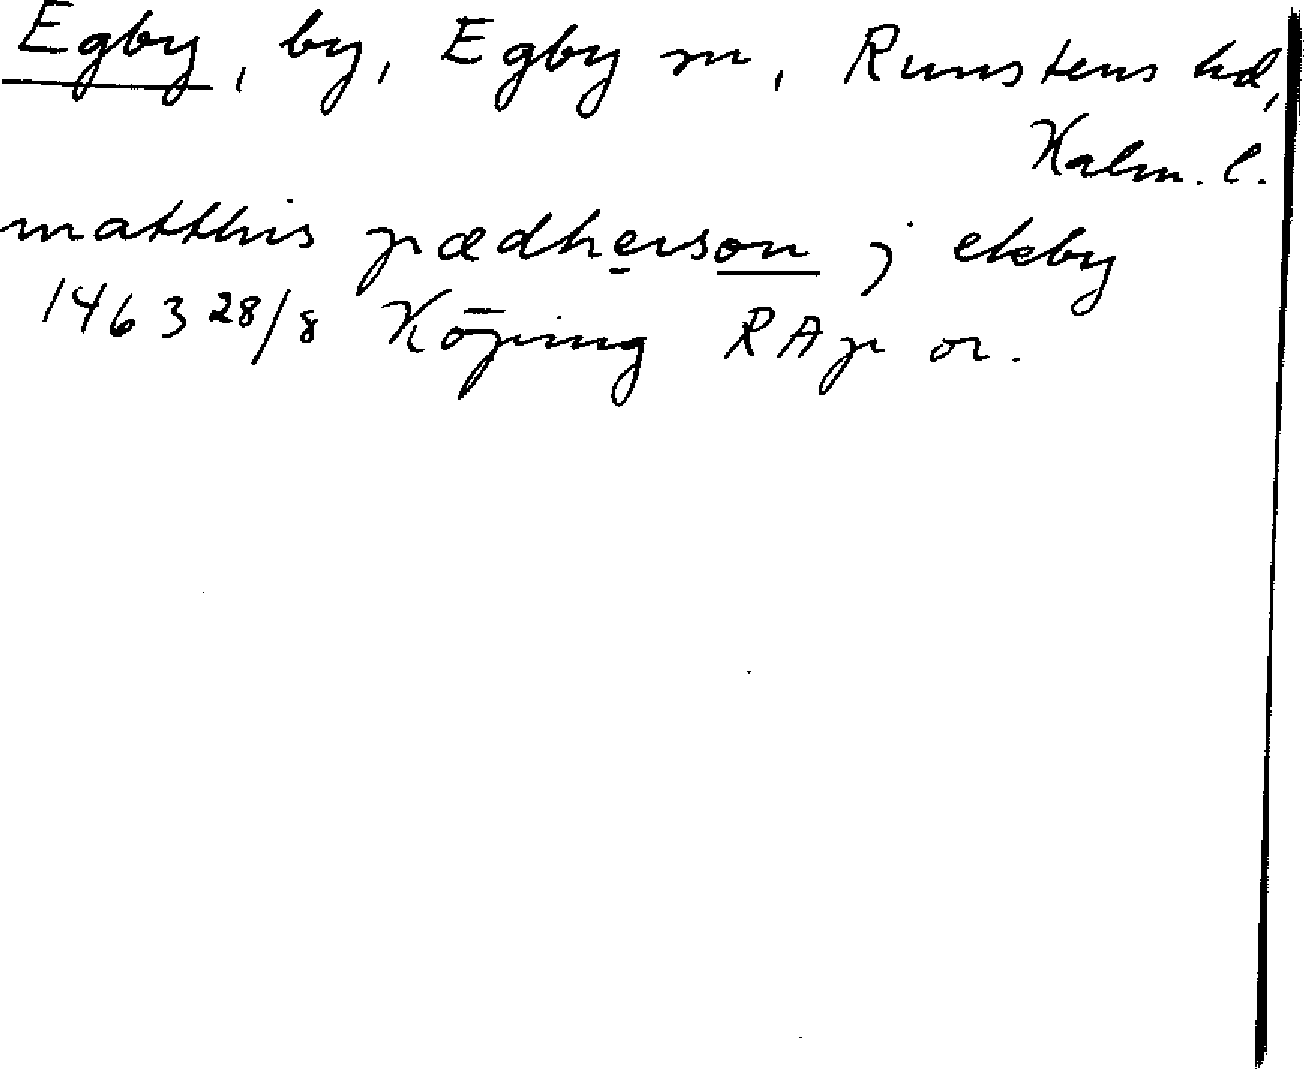 Egby, by, Egby sn, Runstens hd,
Kalm. l.
matthis pædherson j ekby
1463 28/8 Köping RAp or.